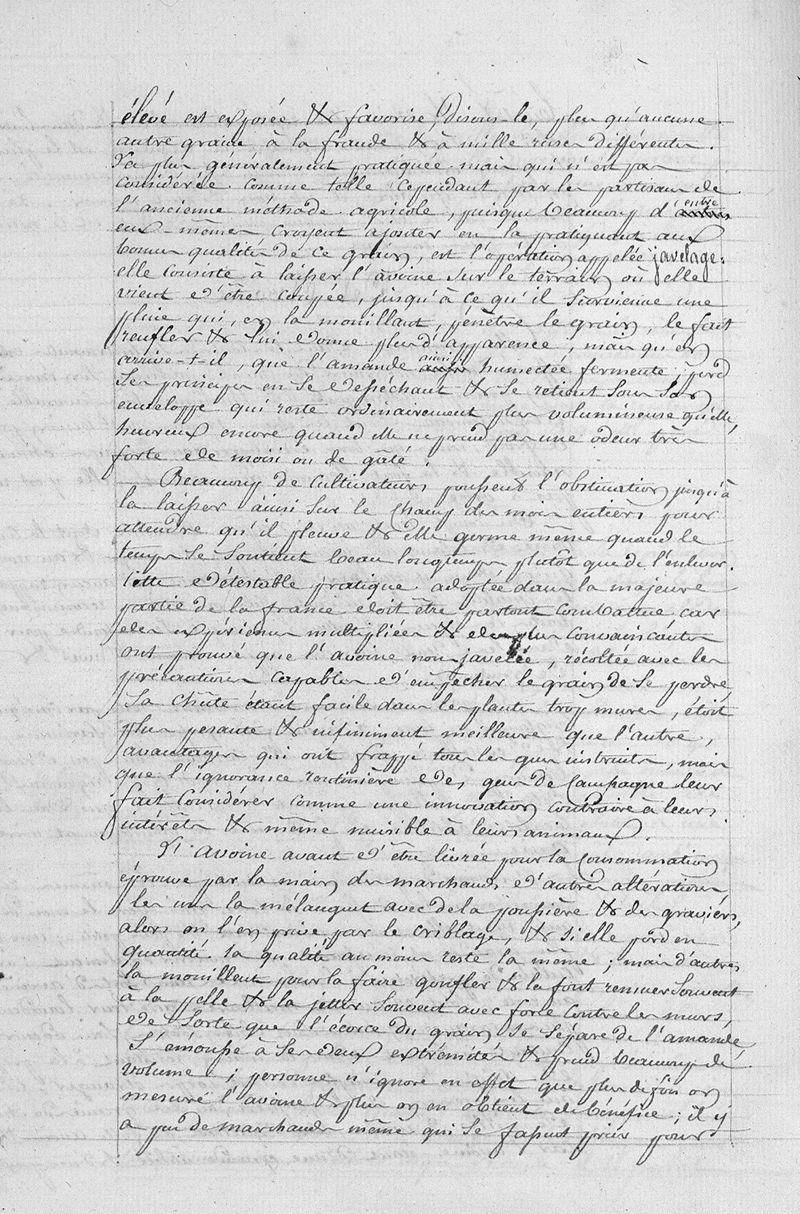 élevé est exposée & favorise, disons-le, plus qu'aucune
autre graine à la fraude & à mille ruses différentes.
La plus généralement pratiquée mais qui n'est pas
considérée comme telle cependant par les partisans de
l'ancienne méthode agricole, puisque beaucoup d'entre
eux mêmes croyent ajouter en la pratiquant aux
bonnes qualités de ce grain, est l'opération appelée javelage:
elle consiste à laisser l'avoine sur le terrain où elle
vient d'être coupée, jusqu'à ce qu'il survienne une
pluie qui, en la mouillant, pénètre le grain, le fait
renfler & lui donne plus d'apparence, mais qu'en
arrive-t-il, que l'amande ainsi humectée fermente, perd
ses principes en se desséchant & se retient sous son
enveloppe qui reste ordinairement plus volumineuse qu'elle,
heureux encore quand elle ne prend pas une odeur très
forte de moisi ou de gâté.
Beaucoup de cultivateurs poussent l'obstination jusqu'à
la laisser ainsi sur le champ des mois entiers pour
attendre qu'il pleuve & elle germe même quand le
temps se soutient beau longtemps plutôt que de l'enlever.
Cette détestable pratique adoptée dans la majeure
partie de la france doit être partout combattue, car
des expériences multipliées & des plus convaincantes
ont prouvé que l'avoine non javelée, récoltée avec les
précautions capables d'empêcher le grain de se perdre
sa chûte étant facile dans les plantes trop mures, étoit
plus pesante & infiniment meilleure que l'autre,
avantages qui ont frappé tous les gens instruits, mais
que l'ignorance routinière des gens de Campagne leur
fait considérer comme une innovation contraire à leurs
intérêts & même nuisible à leurs animaux.
L'avoine avant d'être livrée pour la consommation
éprouve par la main des marchands d'autres altérations
les uns la mélangent avec de la poussière & des graviers,
alors on l'en prive par le criblage, & si elle perd en
quantité sa qualité au moins reste la même; mais d'autres
la mouillent pour la faire gonfler & la font remuer souvent
à la pelle & la jetter souvent avec force contre les murs,
de sorte que l'écorce du grain se sépare de l'amande
s'émousse à ses deux extrémités & prend beaucoup de
volume; personne n'ignore en effet que plus de fois on
mesure l'avoine & plus on en obtient de bénéfice; il y
a peu de marchands même qui se fassent prier pour